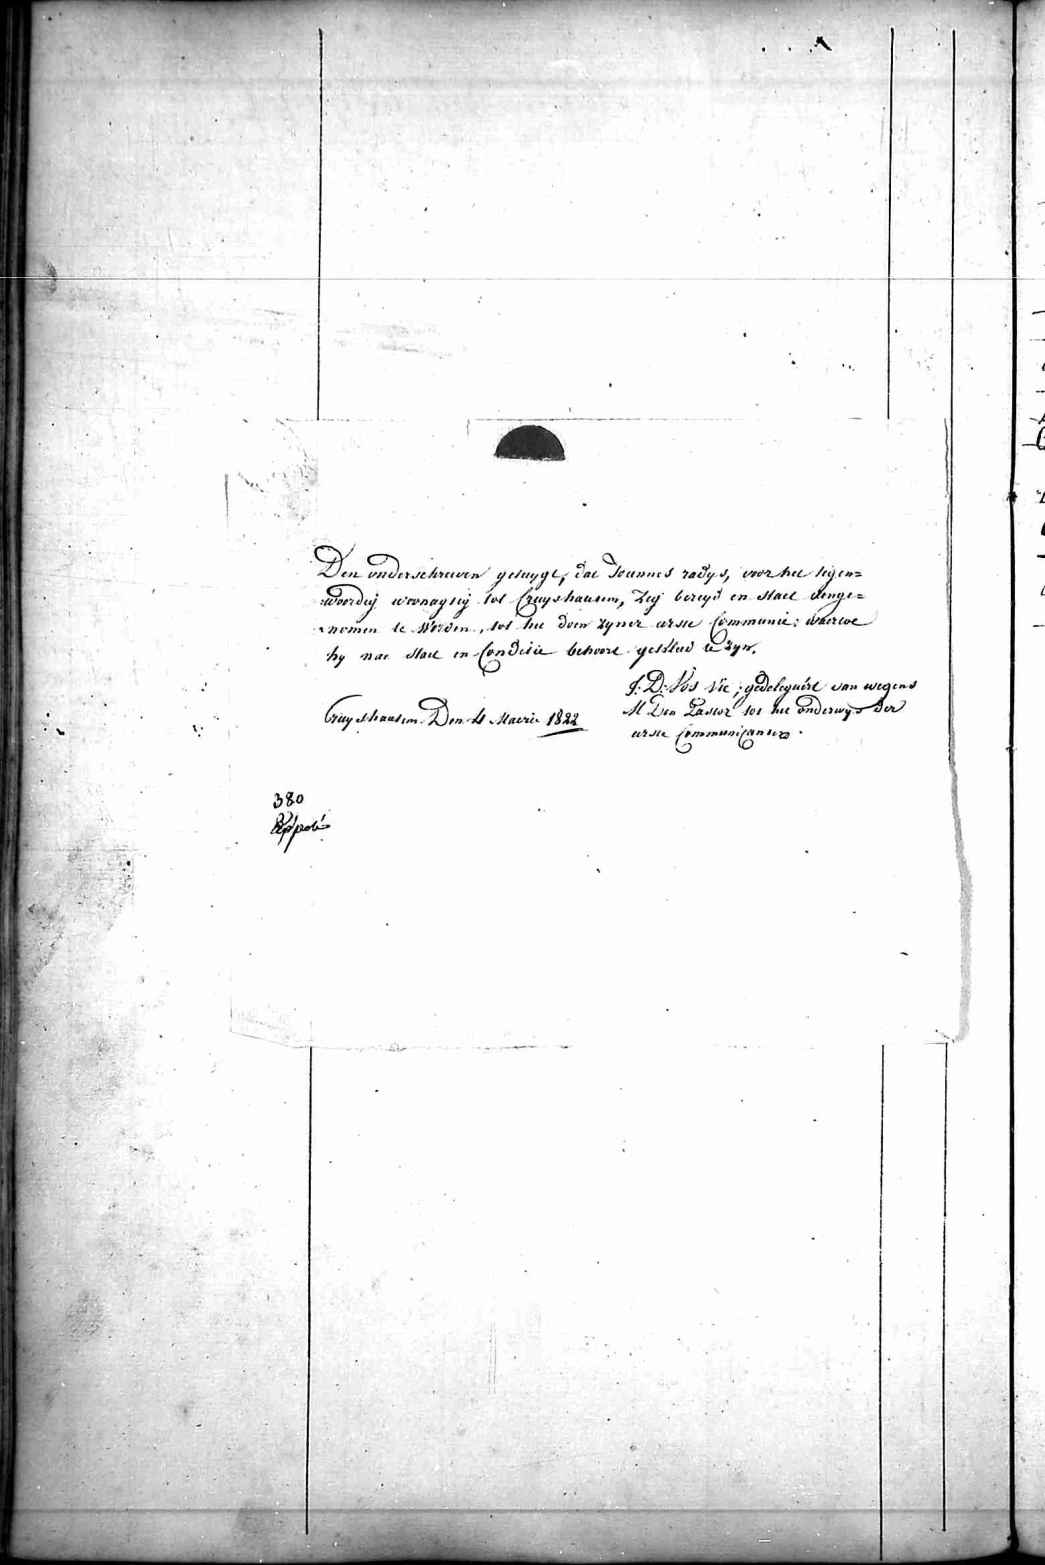 Den onderschreven getuygt, dat Joannes radys, voor het tegen=
woordig woonagtig tot Cruyshautem, Zig bereyd en staet aenge=
nomen te Worden, tot het doen zyner erste Communie: waertoe
hy nae staet en Conditie behoort gesteld te zyn.
J. D. Vos Vic; gedeleguért van wegens
M Den Pastor tot het onderwys der
erste Communicanten.
Cruyshautem Den 4 Maerte 1822
380